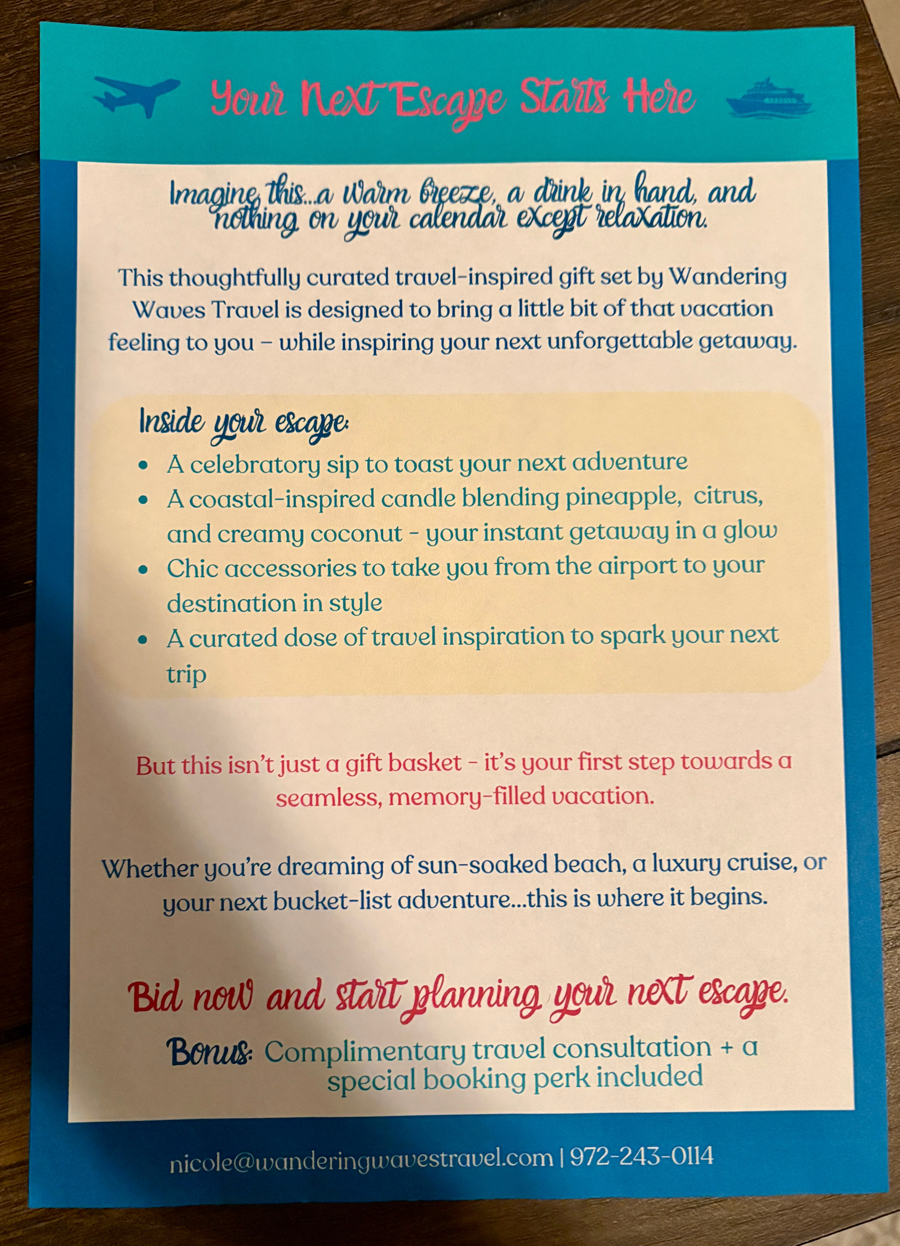 Your Next Escape Starts Here
Imagine this...a warm breeze, a drink in hand, and
nothing on your calendar except relaxation.
This thoughtfully curated travel-inspired gift set by Wandering
Waves Travel is designed to bring a little bit of that vacation
feeling to you – while inspiring your next unforgettable getaway.
Inside your escape:
• A celebratory sip to toast your next adventure
• A coastal-inspired candle blending pineapple, citrus,
and creamy coconut - your instant getaway in a glow
• Chic accessories to take you from the airport to your
destination in style
• A curated dose of travel inspiration to spark your next
trip
But this isn't just a gift basket - it's your first step towards a
seamless, memory-filled vacation.
Whether you're dreaming of sun-soaked beach, a luxury cruise, or
your next bucket-list adventure...this is where it begins.
Bid now and start planning your next escape.
Bonus: Complimentary travel consultation + a
special booking perk included
nicole@wanderingwavestravel.com | 972-243-0114